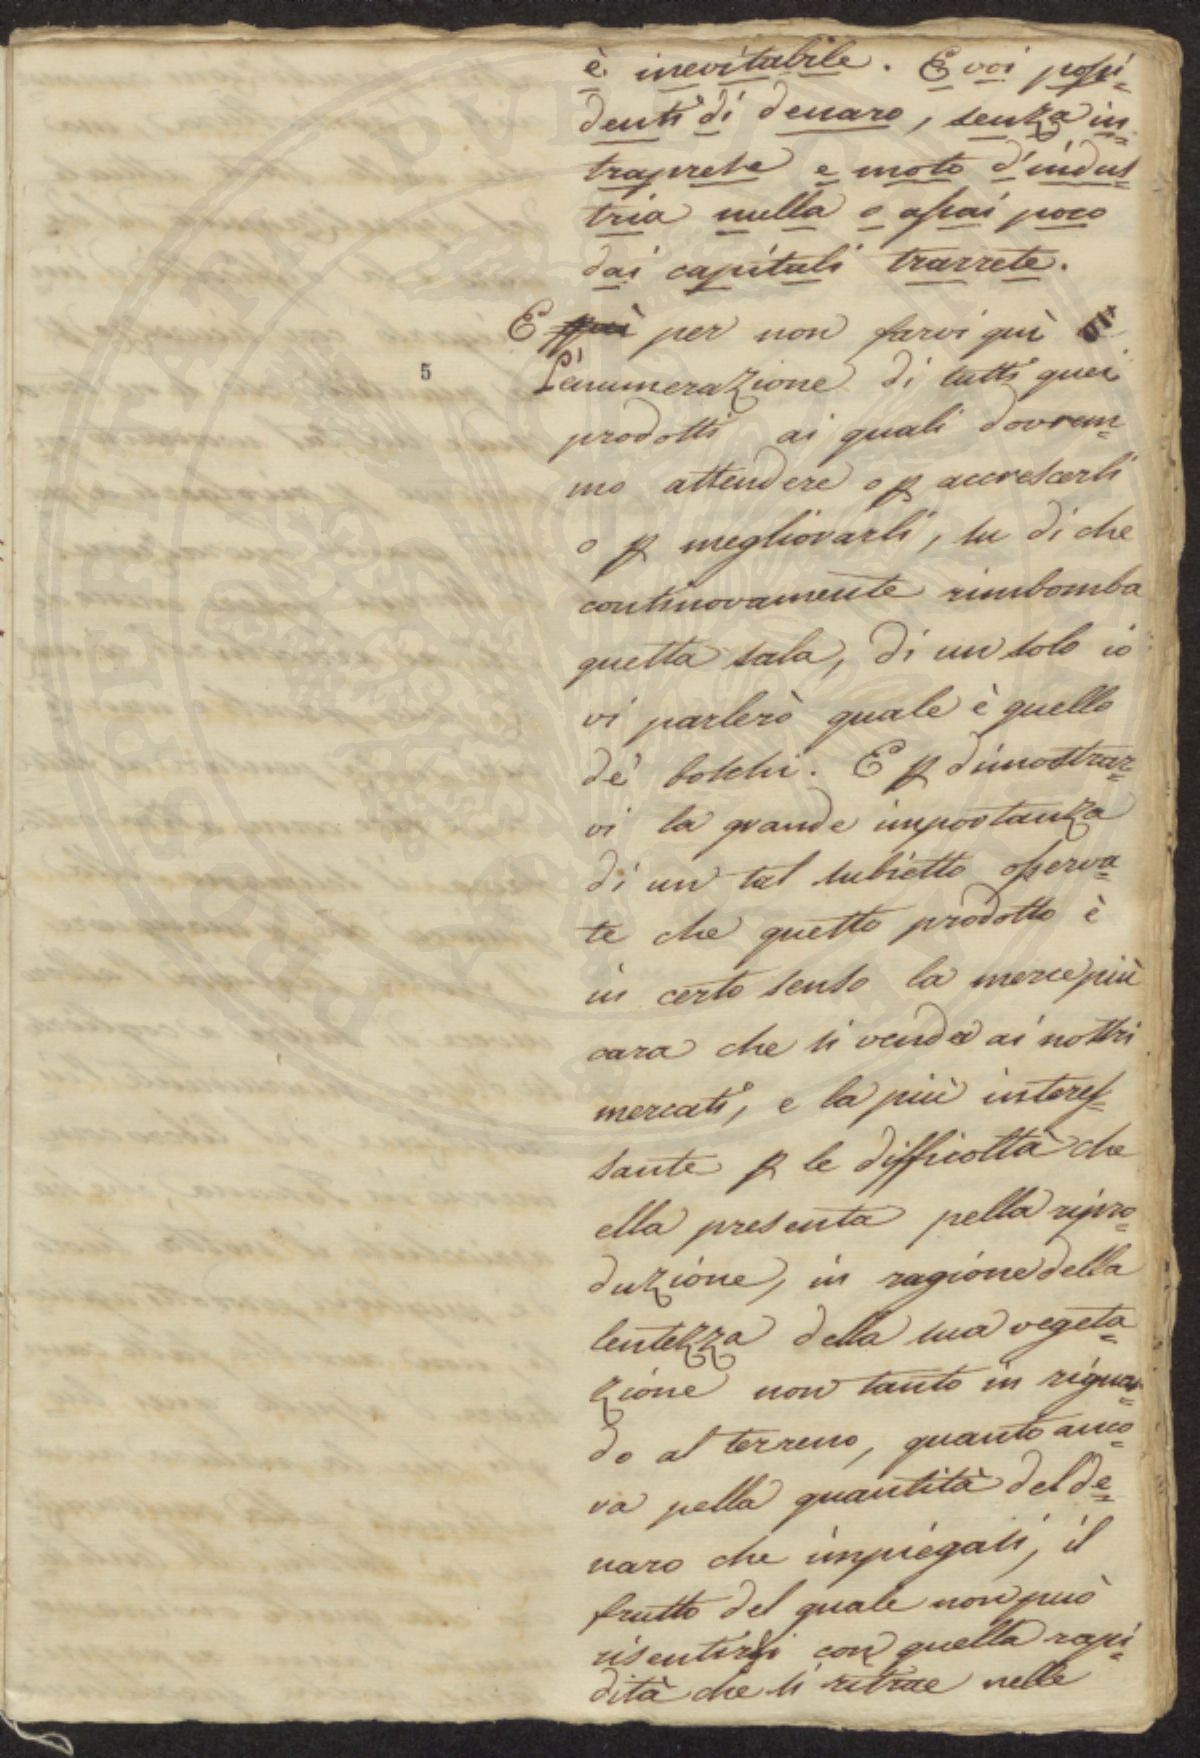 è inevitabile. E voi possi=
denti di denaro, senza in=
traprese e moto d'indus=
tria nulla o assai poco
dai capitali trarrete.
E più per non farvi quì
5
L'enumerazione di tutti quei
prodotti ai quali dovrem=
mo attendere o p accrescerli
o p megliorarli, su di che
continovamente rimbomba
questa sala, di un solo io
vi parlerò quale è quello
de' boschi. E p dimostrar=
vi la grande importanza
di un tal subietto osserva=
te che questo prodotto è
in certo senso la merce più
cara che si venda ai nostri
mercati, e la più interes=
sante p le difficoltà che
ella presenta pella ripro=
duzione, in ragione della
lentezza della sua vegeta=
zione non tanto in riguar=
do al terreno, quanto anco=
ra pella quantità del de=
naro che impiegasi, il
frutto del quale non può
risentirsi con quella rapi=
dità che si ritrae nelle